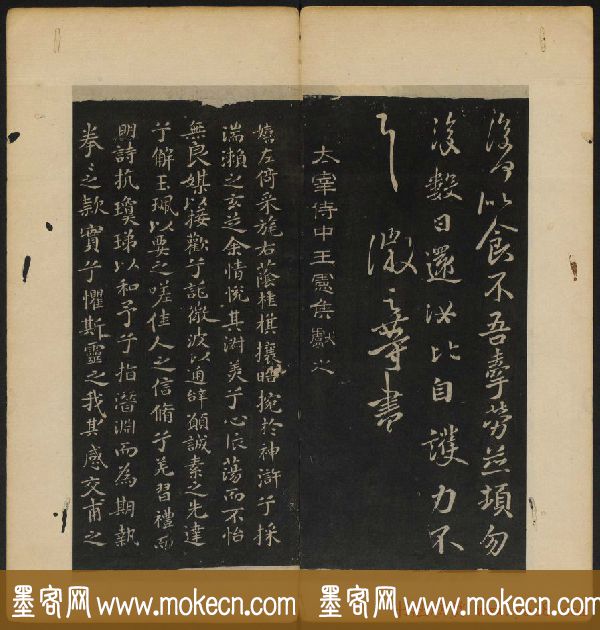 復可以食不吾牽勞並頓勿
復數日還汝比自護力不
具 徽之等書
太宰侍中王憲侯獻之
嬉左倚采旄右蔭桂旗攘皓捥於神滸兮採
湍瀨之玄芝余情悅其淑美兮心振蕩而不怡
無良媒以接歡兮託微波以通辭願誠素之先達
兮解玉珮以要之嗟佳人之信脩兮羌習禮而
明詩抗瓊珶以和予兮指潛淵而為期執
拳之款實兮懼斯靈之我其感交甫之
墨客网 www.mokecn.com 墨客网 www.mokecn.com